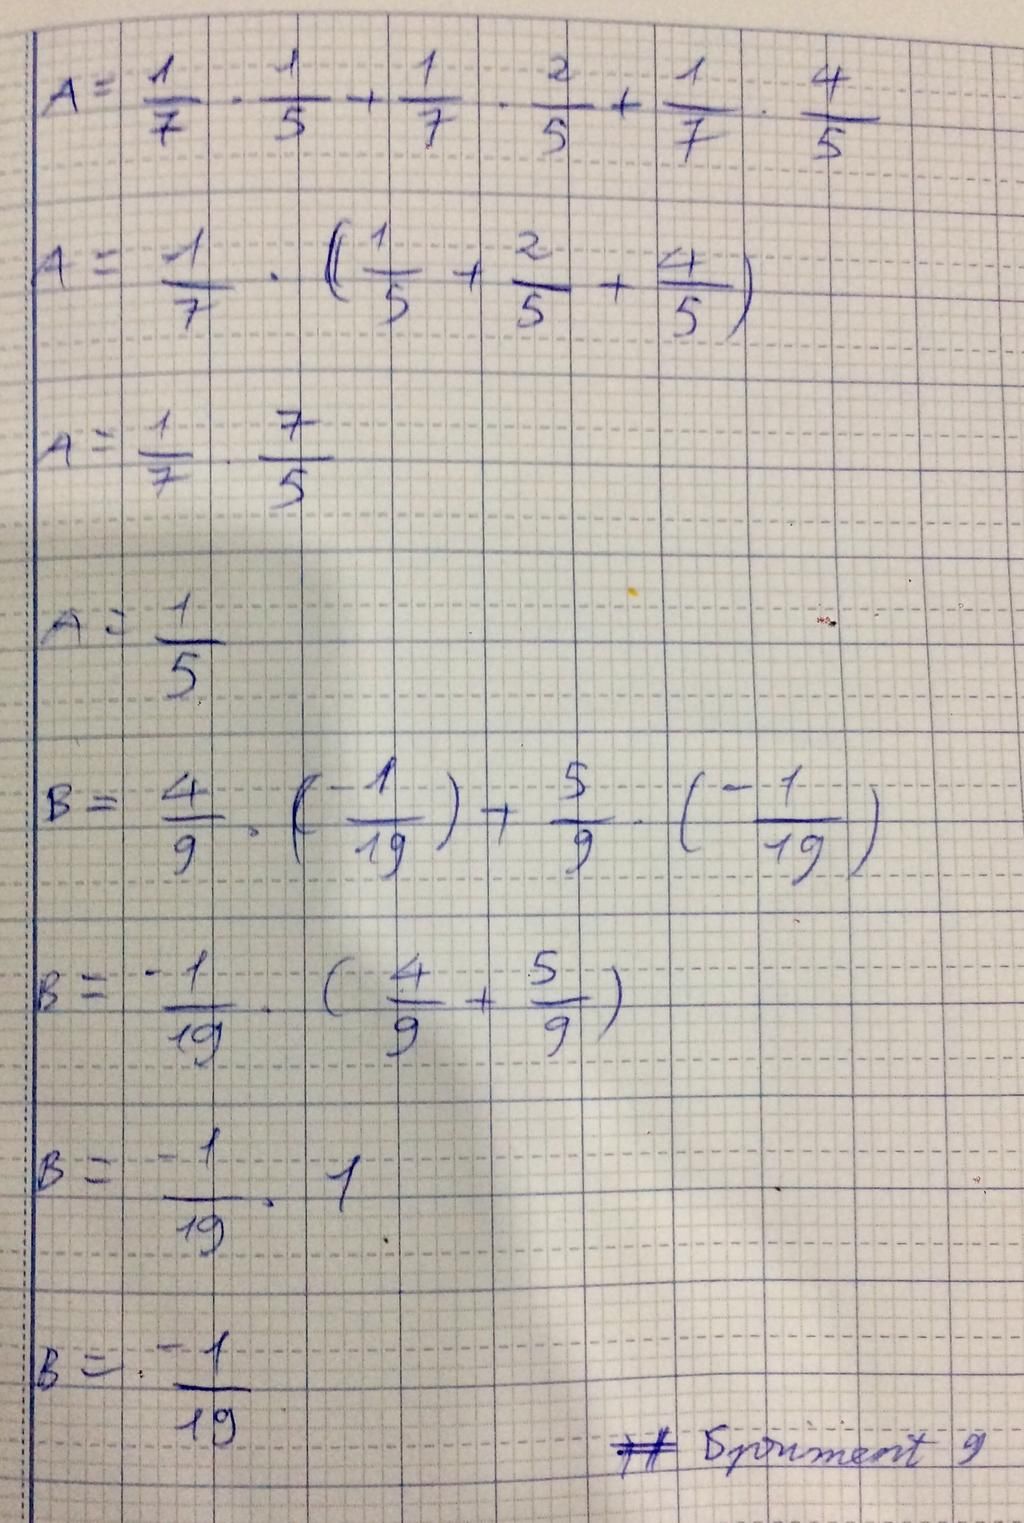 A = 1/7 . 1/5 + 1/7 . 2/5 + 1/7 . 4/5
A = 1/7 . (1/5 + 2/5 + 4/5)
A = 1/7 . 7/5
A = 1/5
B = 4/9 . (-1/19) + 5/9 . (-1/19)
B = -1/19 . (4/9 + 5/9)
B = -1/19 . 1
B = -1/19
9